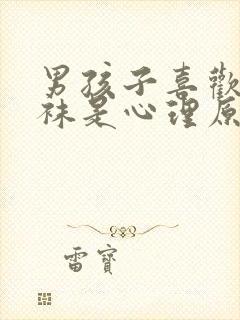 男孩子喜歡
袜是心理原
雷寶